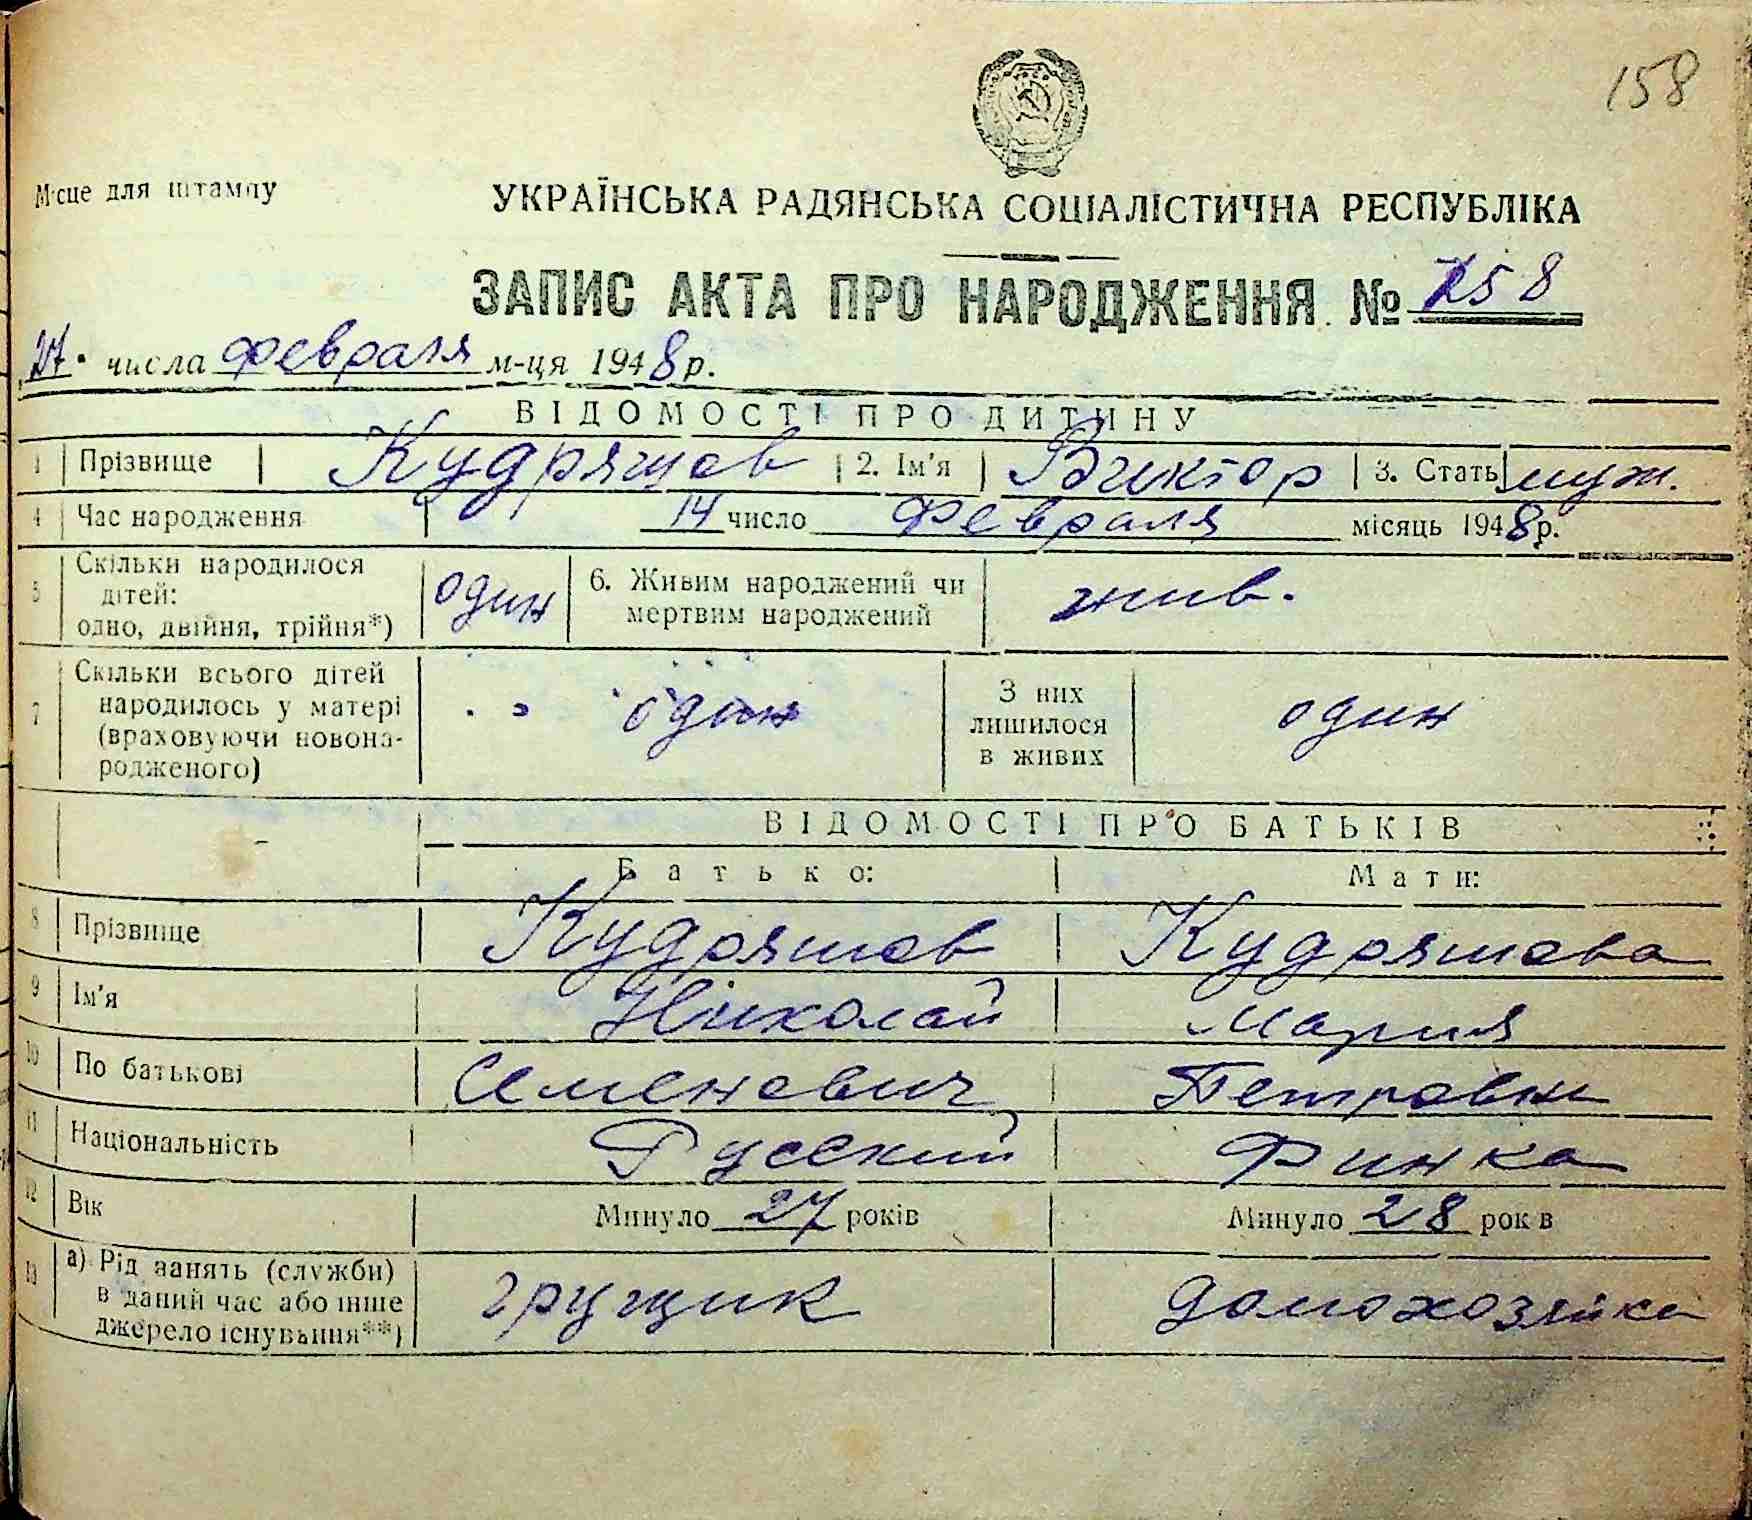 158
Місце для штампу
УКРАЇНСЬКА РАДЯНСЬКА СОЦІАЛІСТИЧНА РЕСПУБЛІКА
ЗАПИС АКТА ПРО НАРОДЖЕННЯ № 158
27 числа февраля м-ця 1948 р.
ВІДОМОСТІ ПРО ДИТИНУ
1 Прізвище Кудряшов 2. Ім'я Виктор 3. Стать муж.
4 Час народження 14 число Февраля місяць 1948 р.
5 Скільки народилося дітей: одно, двійня, трійня*) один 6. Живим народжений чи мертвим народжений жив.
7 Скільки всього дітей народилось у матері (враховуючи новонародженого) один З них лишилося в живих один
ВІДОМОСТІ ПРО БАТЬКІВ
Батько: Мати:
8 Прізвище Кудряшов Кудряшова
9 Ім'я Николай Мария
10 По батькові Семенович Петровна
11 Національність Русский Финка
12 Вік Минуло 27 років Минуло 28 років
13 а) Рід занять (служби) в даний час або інше джерело існування**) грущик домохозяйка